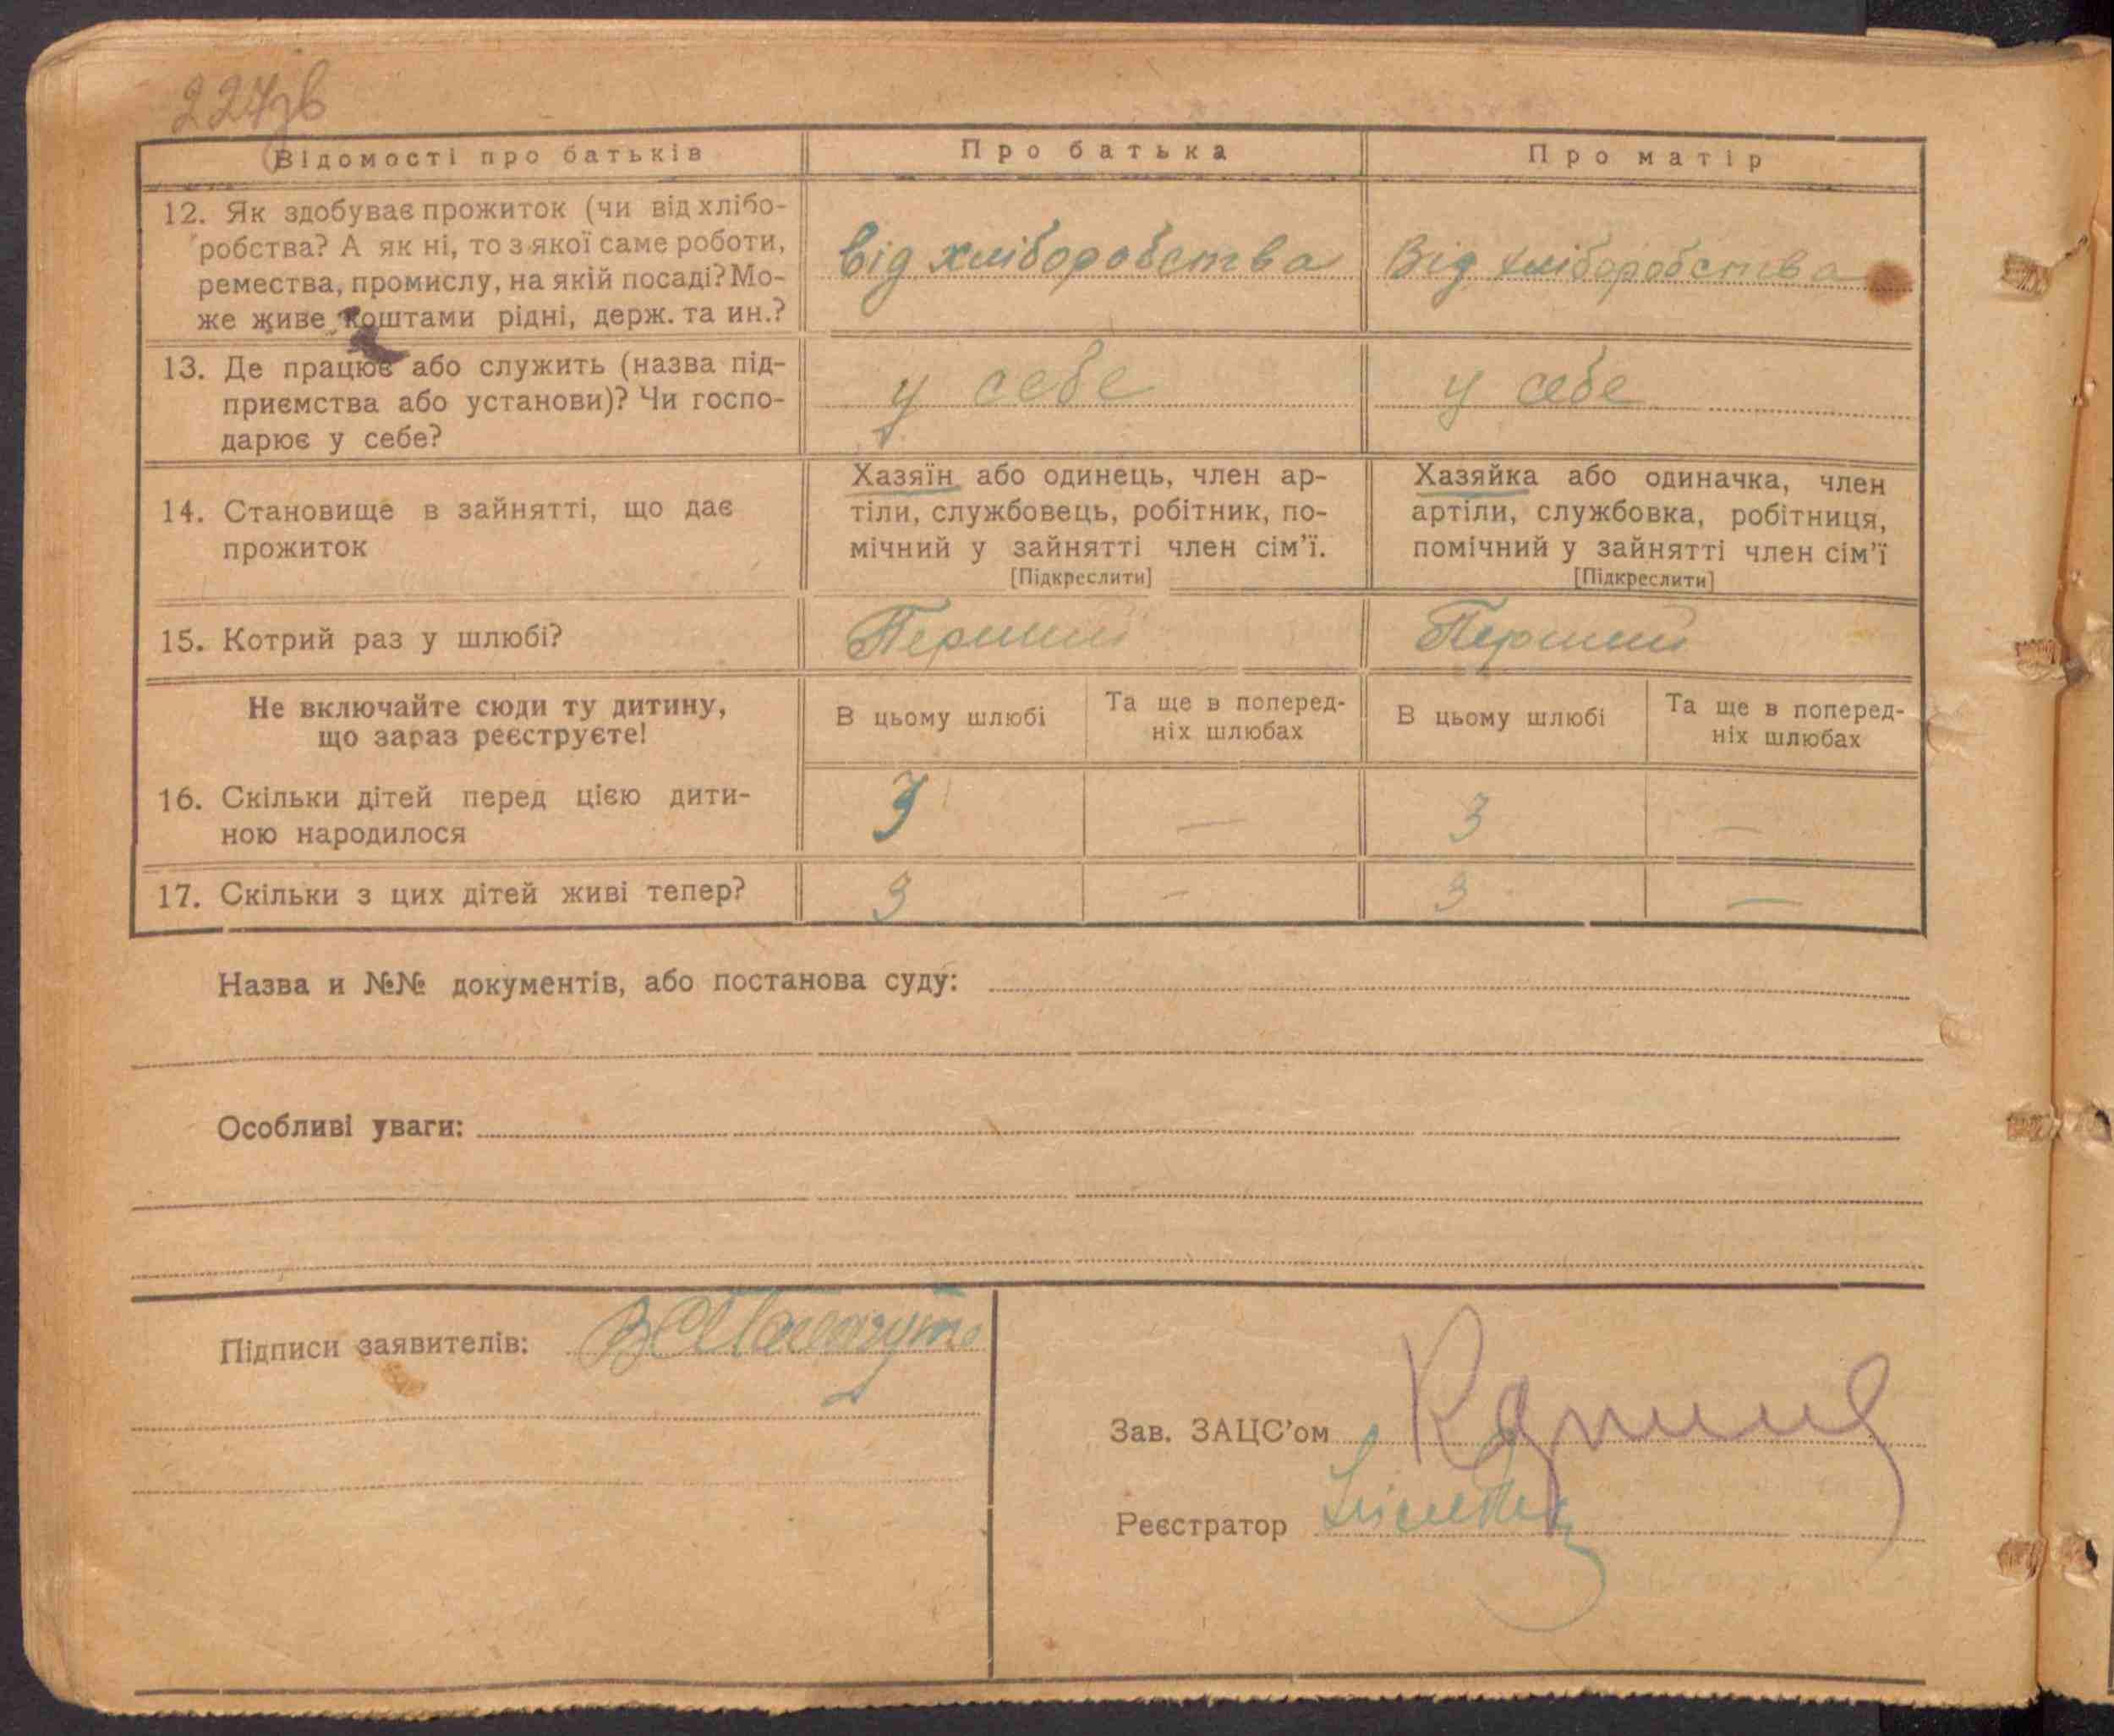 227зв
Відомості про батьків
Про батька
Про матір
12. Як здобуває прожиток (чи від хлібо-
робства? А як ні, то з якої саме роботи,
ремества, промислу, на якій посаді? Мо-
же живе коштами рідні, держ. та ин.?
від хліборобства
Від хліборобства
13. Де працює або служить (назва під-
приємства або установи)? Чи госпо-
дарює у себе?
у себе
у себе
14. Становище в зайнятті, що дає
прожиток
Хазяїн або одинець, член ар-
тіли, службовець, робітник, по-
мічний у зайнятті член сім’ї.
[Підкреслити]
Хазяйка або одиначка, член
артіли, службовка, робітниця,
помічний у зайнятті член сім’ї
[Підкреслити]
15. Котрий раз у шлюбі?
Перший
Перший
Не включайте сюди ту дитину,
що зараз реєструєте!
В цьому шлюбі
Та ще в поперед-
ніх шлюбах
В цьому шлюбі
Та ще в поперед-
ніх шлюбах
16. Скільки дітей перед цією дити-
ною народилося
3
—
3
—
17. Скільки з цих дітей живі тепер?
3
—
3
—
Назва и №№ документів, або постанова суду:
Особливі уваги:
Підписи заявителів:
Зав. ЗАЦС’ом
Реєстратор